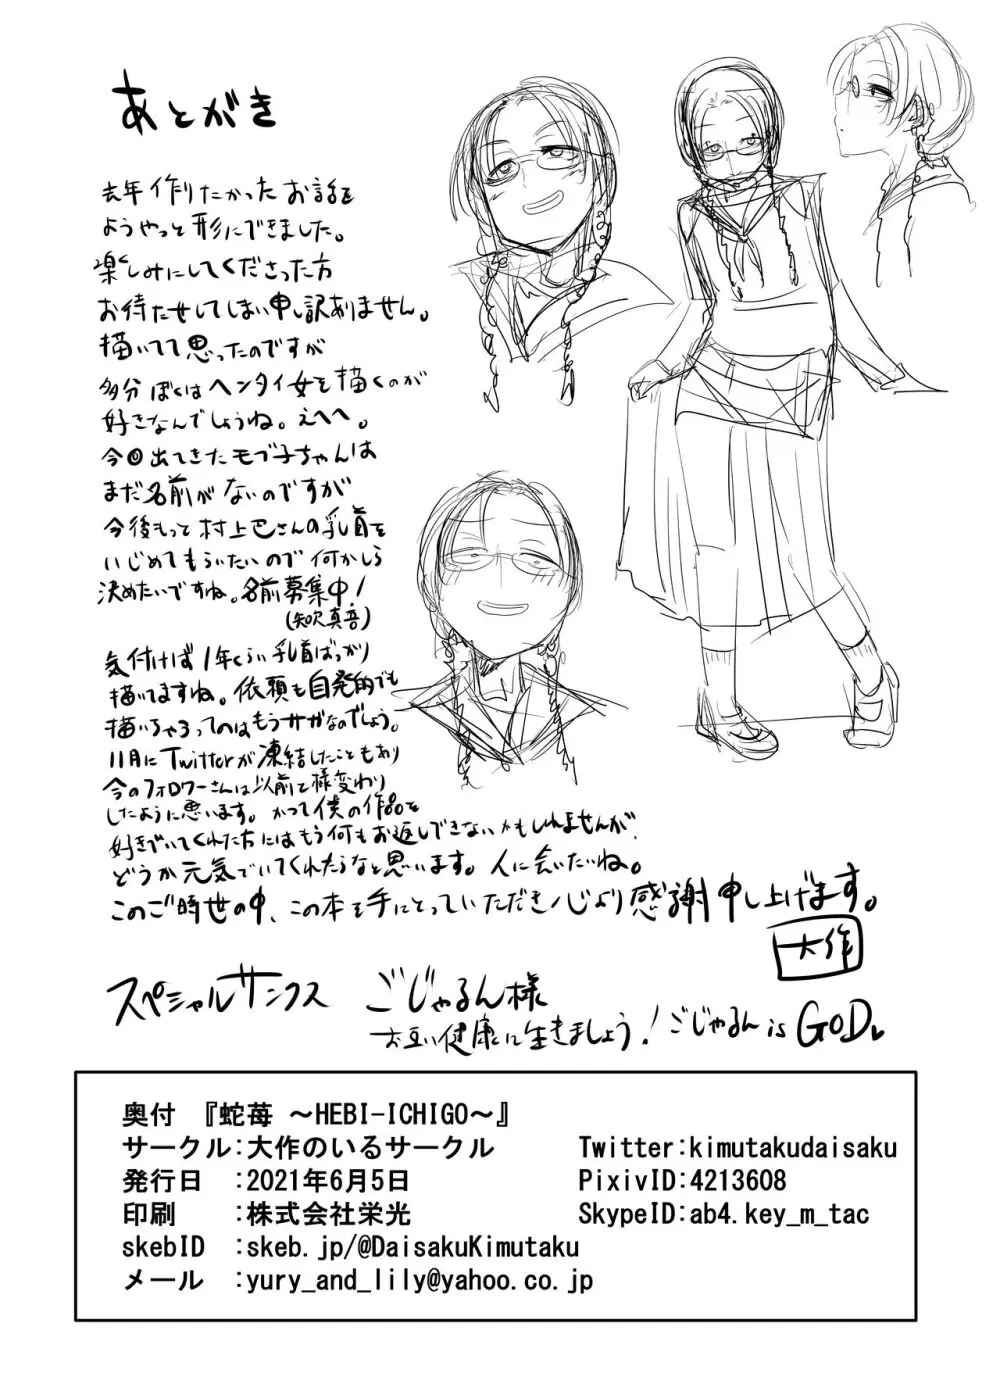 あとがき
去年作りたかったお話を
ようやっと形にできました。
楽しみにしてくださった方
お待たせしてしまい申し訳ありません。
描いてて思ったのですが
多分ぼくはヘンタイ女を描くのが
好きなんでしょうね。えへへ。
今回出てきたモブ子ちゃんは
まだ名前がないのですが
今後もっと村上巴さんの乳首を
いじめてもらいたいので何かしら
決めたいですね。名前募集中！
気付けば1年くらい乳首ばっかり
描いてますね。依頼も自発的でも
描いちゃうってのはもうサガなのでしょう。
11月にTwitterが凍結したこともあり
今のフォロワーさんは以前と様変わり
したように思います。かつて僕の作品を
好きでいてくれた方にはもう何もお返しできないかもしれませんが、
どうか元気でいてくれたらなと思います。人に会いたいね。
このご時世の中、この本を手にとっていただき心より感謝申し上げます。
大作
スペシャルサンクス ごじゃるん様
お互い健康に生きましょう！ごじゃるん is GOD♥
奥付 『蛇苺 ～HEBI-ICHIGO～』
サークル:大作のいるサークル Twitter:kimutakudaisaku
発行日 :2021年6月5日 PixivID:4213608
印刷 :株式会社栄光 SkypeID:ab4.key_m_tac
skebID :skeb.jp/@DaisakuKimutaku
メール :yury_and_lily@yahoo.co.jp